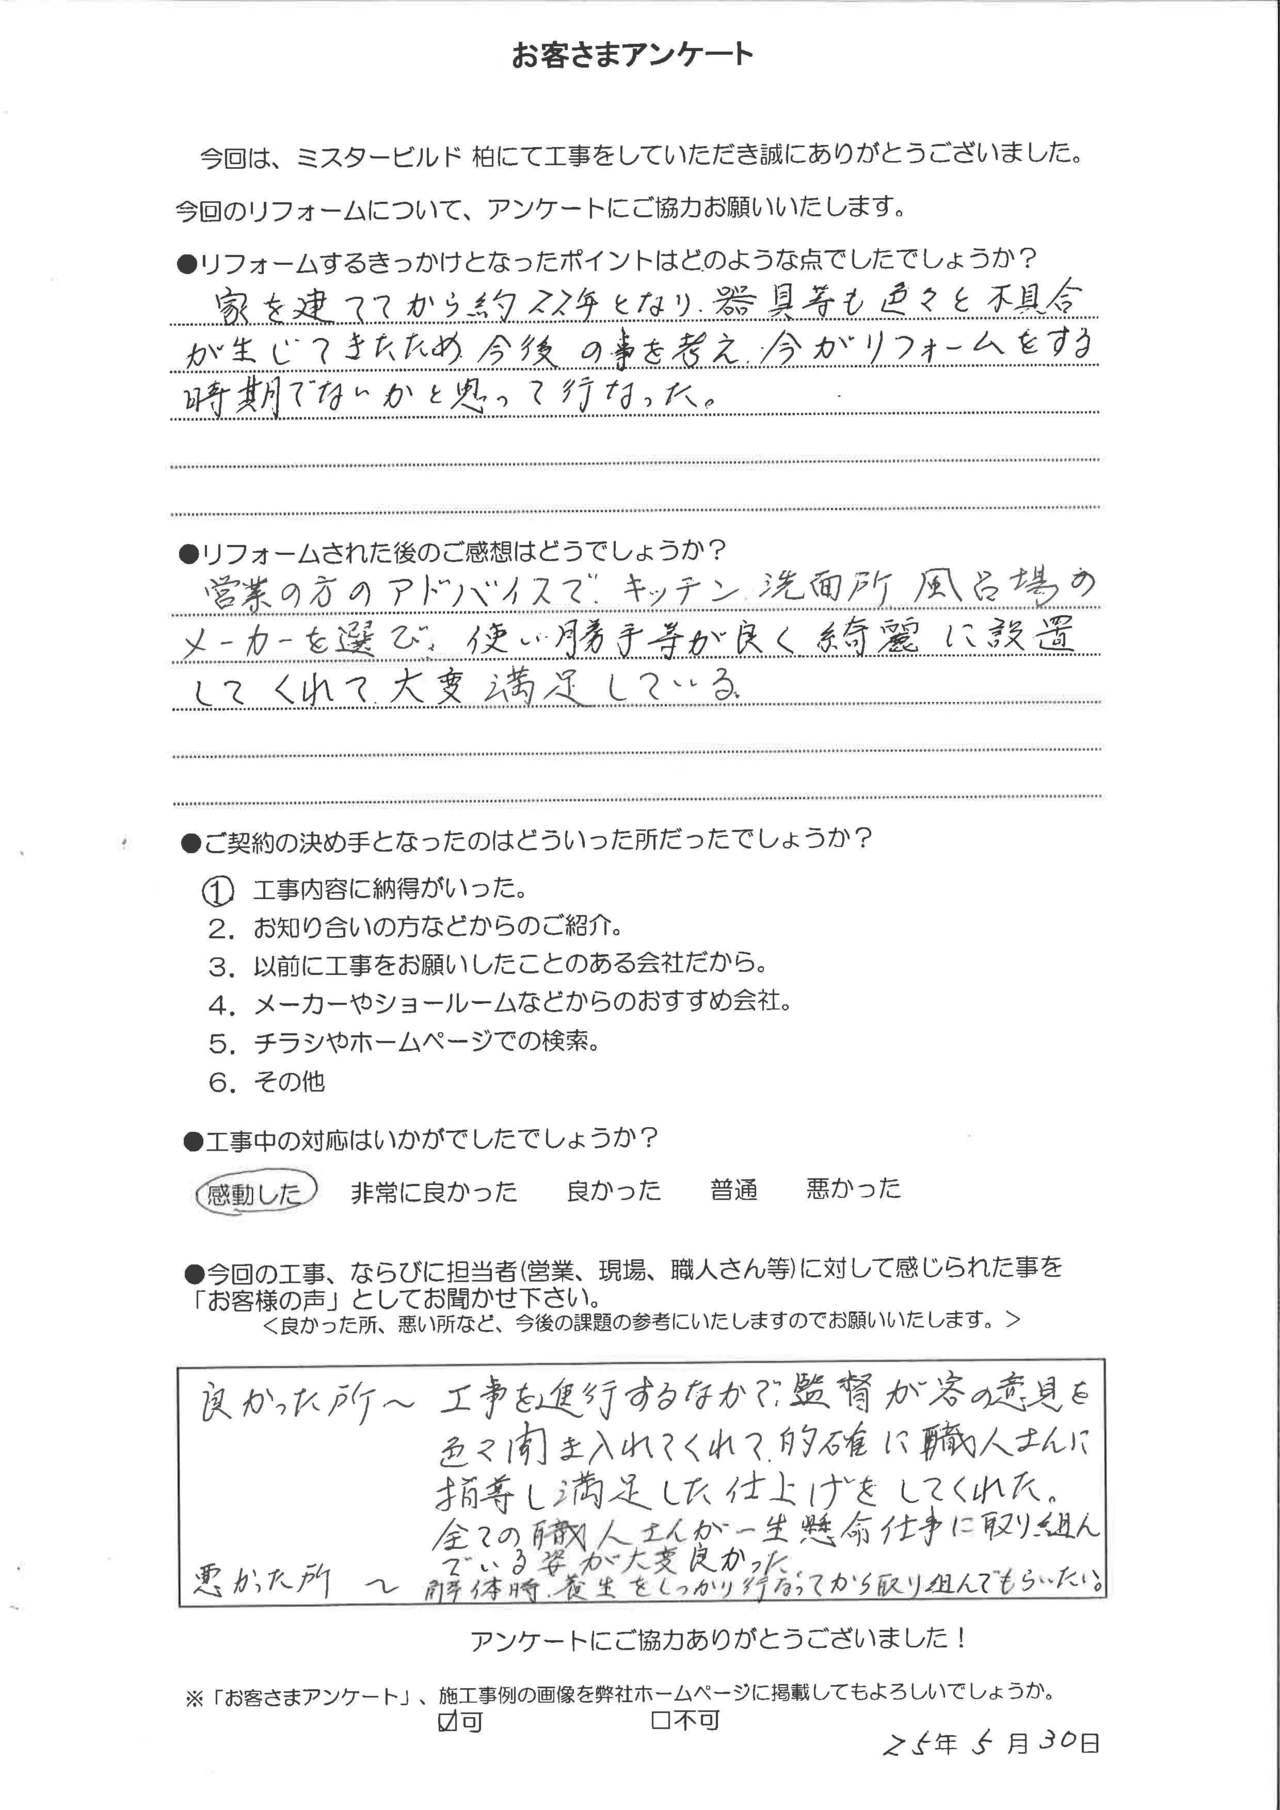 お客さまアンケート
今回は、ミスタービルド 柏にて工事をしていただき誠にありがとうございました。
今回のリフォームについて、アンケートにご協力お願いいたします。
●リフォームするきっかけとなったポイントはどのような点でしたでしょうか？
家を建ててから約22年となり、器具等も色々と不具合
が生じてきたため、今後の事を考え、今がリフォームをする
時期でないかと思って行なった。
●リフォームされた後のご感想はどうでしょうか？
営業の方のアドバイスで、キッチン、洗面所、風呂場の
メーカーを選び、使い勝手等が良く綺麗に設置
してくれて、大変満足している。
●ご契約の決め手となったのはどういった所だったでしょうか？
1. 工事内容に納得がいった。
2. お知り合いの方などからのご紹介。
3. 以前に工事をお願いしたことのある会社だから。
4. メーカーやショールームなどからのおすすめ会社。
5. チラシやホームページでの検索。
6. その他
●工事中の対応はいかがでしたでしょうか？
感動した 非常に良かった 良かった 普通 悪かった
●今回の工事、ならびに担当者(営業、現場、職人さん等)に対して感じられた事を
「お客様の声」としてお聞かせ下さい。
＜良かった所、悪い所など、今後の課題の参考にいたしますのでお願いいたします。＞
良かった所〜 工事を進行するなかで、監督が客の意見を
色々聞き入れてくれて、的確に職人さんに
指導し満足した仕上げをしてくれた。
全ての職人さんが一生懸命仕事に取り組ん
でいる姿が大変良かった
悪かった所 〜 解体時、養生をしっかり行なってから取り組んでもらいたい。
アンケートにご協力ありがとうございました！
※「お客さまアンケート」、施工事例の画像を弊社ホームページに掲載してもよろしいでしょうか。
☑可 □不可
25年 5月 30日